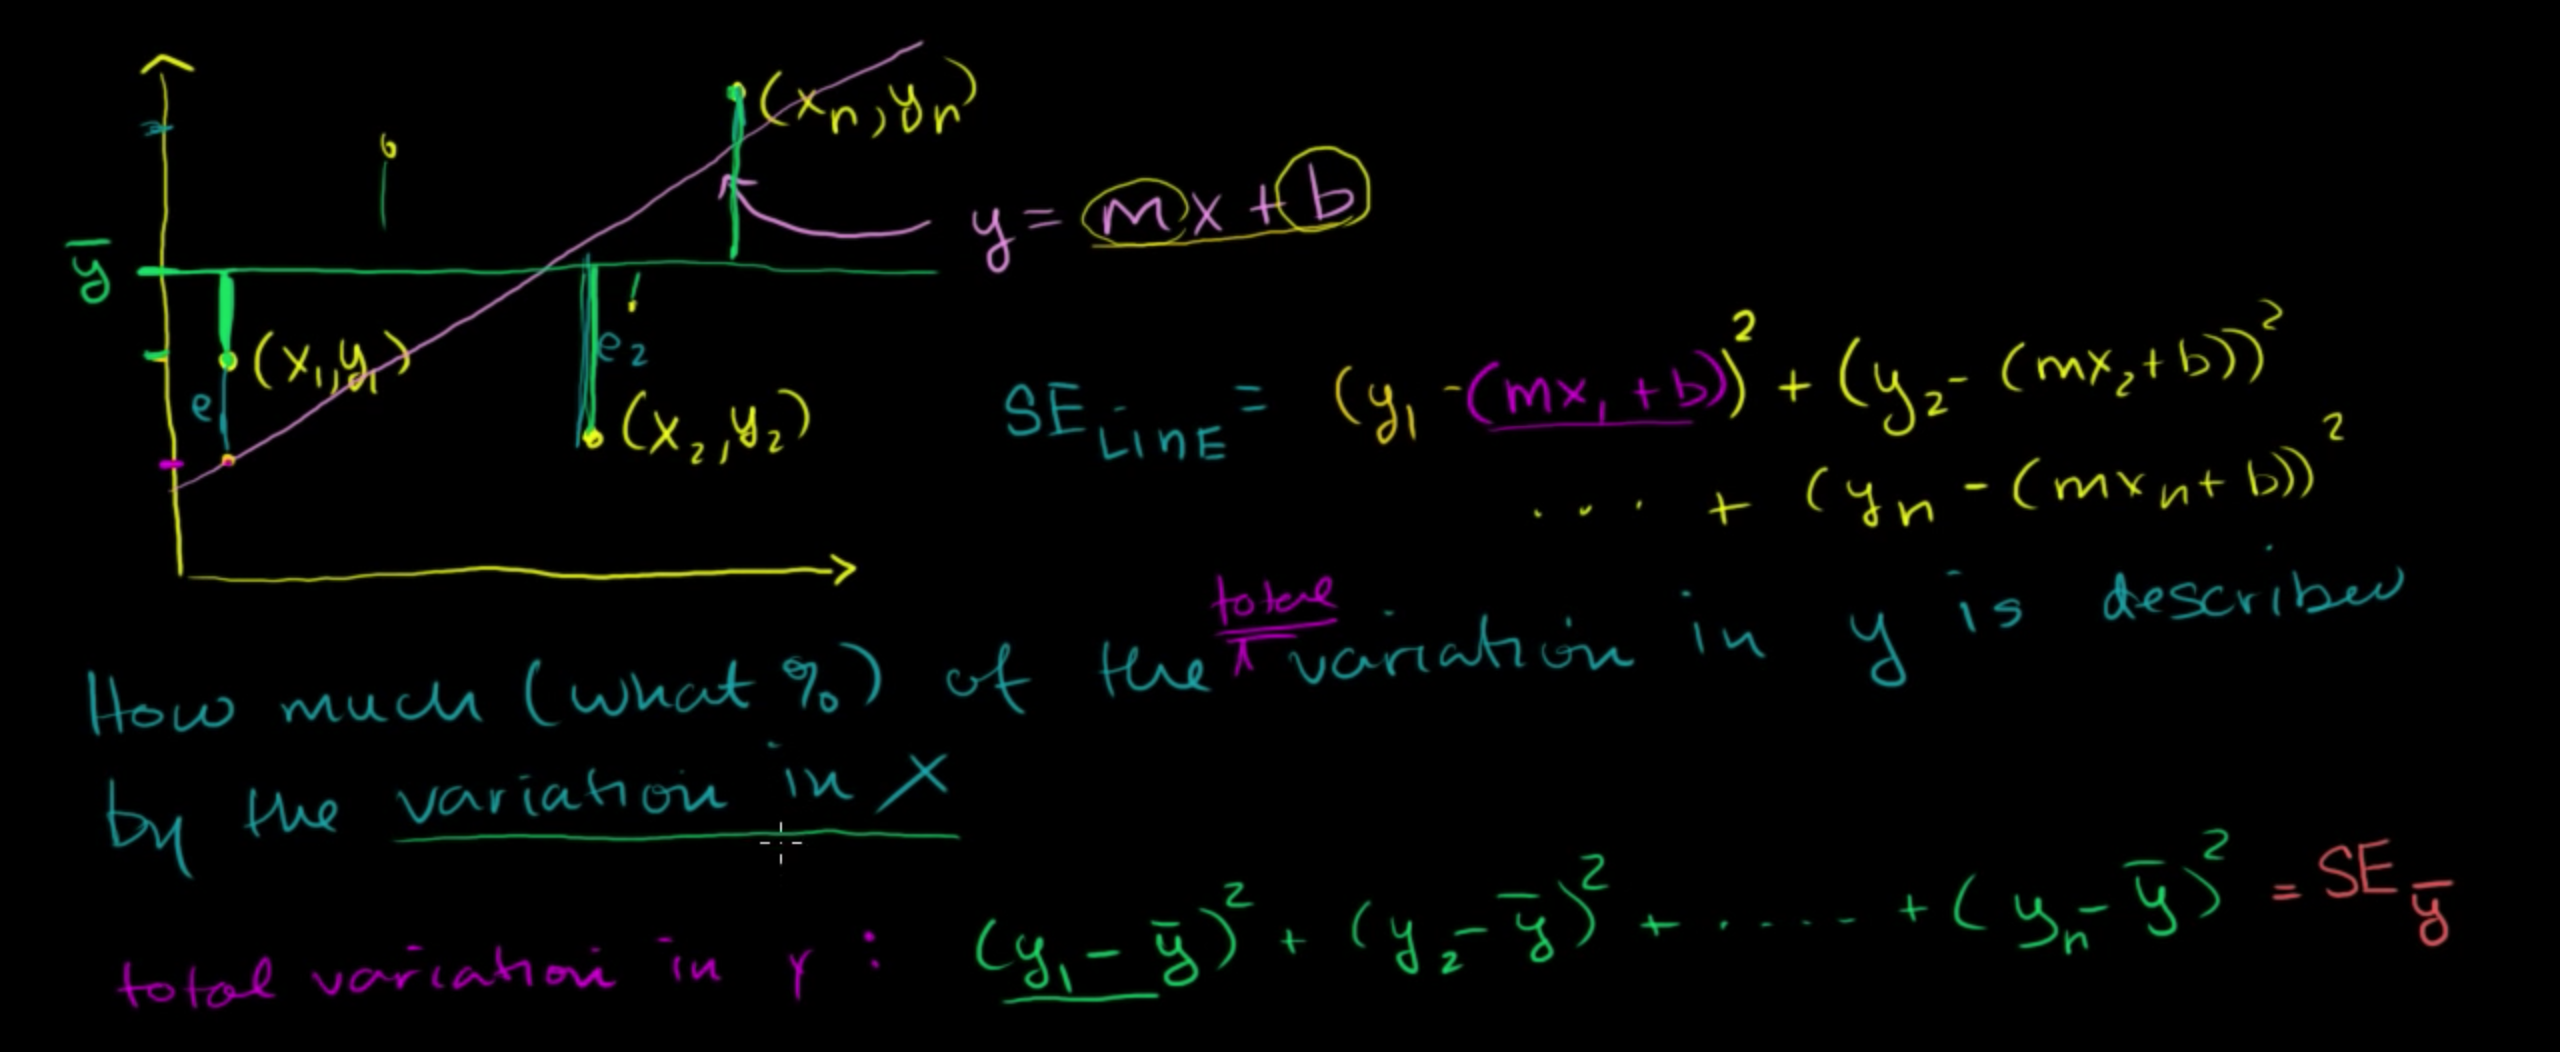 (xₙ, yₙ)
y = mx + b
ȳ
(x₁, y₁)
e₂
e
(x₂, y₂)
SE LinE = (y₁ - (mx₁ + b))² + (y₂ - (mx₂ + b))²
... + (yₙ - (mxₙ + b))²
total
How much (what %) of the variation in y is described
by the variation in x
total variation in y : (y₁ - ȳ)² + (y₂ - ȳ)² + ..... + (yₙ - ȳ)² = SE ȳ